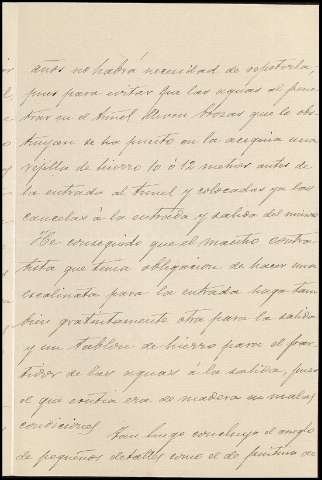 años no habrá necesidad de repetirla,
pues para evitar que las aguas al pene
trar en el túnel lleven brozas que lo obs
truyan se ha puesto en la acequia una
rejilla de hierro 10 ó 12 metros antes de
la entrada al túnel y colocadas ya las
cancelas á la entrada y salida del mismo
He conseguido que el maestro contra
tista que tenia obligacion de hacer una
escalinata para la entrada haga tam
bien gratuitamente otra para la salida
y un tablero de hierro para el par
tidor de las aguas á la salida, pues
el que existia era de madera en malas
condiciones.
Tan luego concluya el arreglo
de pequeños detalles como el de pintura de